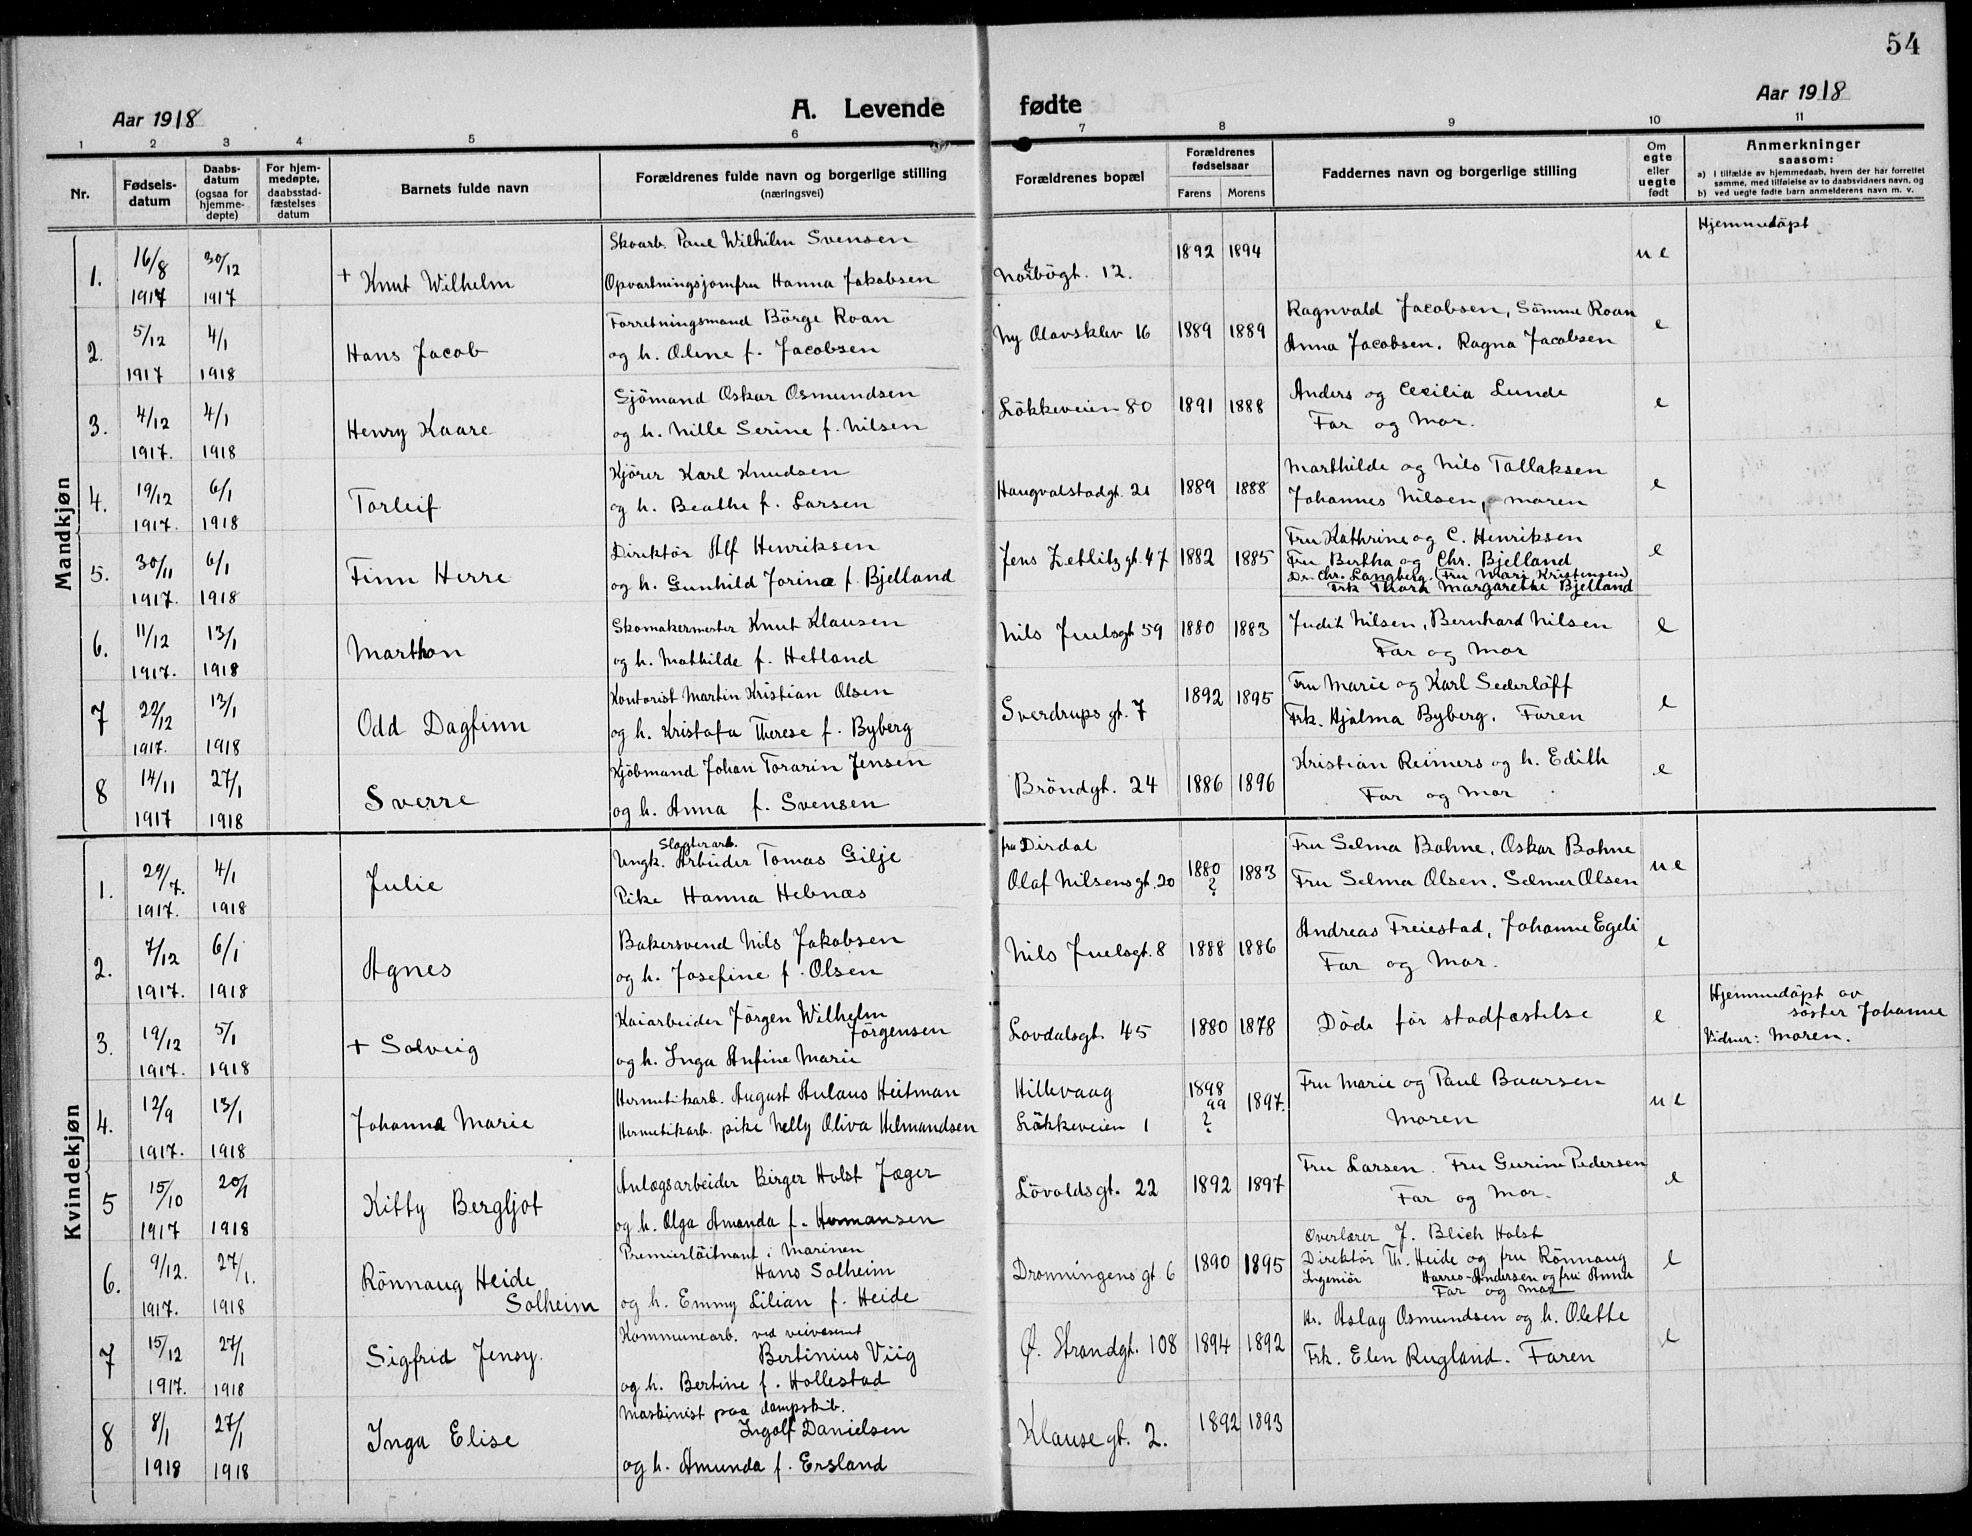 54
Aar 1918
A. Levende
fødte
Aar 1918
1 2 3 4 5 6 7 8 9 10 11
Nr.
Fødsels-
datum
Daabs-
datum
(ogsaa for
hjemme-
døpte)
For hjem-
medøpte,
daabsstad-
fæstelses
datum
Barnets fulde navn
Forældrenes fulde navn og borgerlige stilling
(næringsvei)
Forældrenes bopæl
Forældrenes
fødselsaar
Farens Morens
Faddernes navn og borgerlige stilling
Om
egte
eller
uegte
født
Anmerkninger
saasom:
a) I tilfælde av hjemmedaab, hvem der har forrettet
samme, med tilføielse av to daabsvidners navn, og
b) ved uegte fødte barn anmelderens navn m. v.
Mandkjøn
1. 16/8 1917 30/12 1917 + Knut Wilhelm
Skoarb. Paul Wilhelm Svensen
Opvartningsjomfru Hanna Jakobsen
Norbögt. 12. 1892 1894 u e
Hjemmedöpt
2. 5/12 1917 4/1 1918 Hans Jacob
Forretningsmand Börge Roan
og h. Oline f. Jacobsen
Ny Olavsklev 16 1889 1889
Ragnvald Jacobsen, Sömme Roan
Anna Jacobsen. Ragna Jacobsen
e
3. 4/12 1917. 4/1 1918 Henry Kaare
Sjömand Oskar Osmundsen
og h. Nille Serine f. Nilsen
Lökkeveien 80 1891 1888
Anders og Cecilia Lunde
Far og Mor.
e
4. 19/12 1917. 6/1 1918 Torleif
Kjörer Karl Knudsen
og h. Beathe f. Larsen
Haugvalstadgt. 21 1889 1888
Marthilde og Nils Tallaksen
Johannes Nilsen, moren
e
5. 30/11 1917. 6/1 1918 Finn Herre
Direktör Alf Henriksen
og h. Gunhild Jorine f. Bjelland
Jens Zetlitzgt. 47 1882 1885
Fru Kathrine og C. Henriksen
Fru Bertha og Chr. Bjelland
Dr. Chr. Langberg. (Fru Mari Kristensen)
Frk Thora Margarethe Bjelland
e
6. 11/12 1917. 13/1 1918 Marthon
Skomakermester Knut Klausen
og h. Mathilde f. Hetland
Nils Juelsgt 59 1880 1883
Judith Nilsen, Bernhard Nilsen
Far og Mor
e
7 22/12 1917. 13/1 1918 Odd Dagfinn
Kontorist Martin Kristian Olsen
og h. Kristofa Therese f. Byberg
Sverdrups gt. 7 1892 1895
Fru Marie og Karl Sederlöff
Frk. Hjalma Byberg. Faren
e
8 14/11 1917 27/1 1918 Sverre
Kjöbmand Johan Torarin Jensen
og h. Anna f. Svensen
Bröndgt. 24 1886 1896
Kristian Reimers og h. Edith
Far og Mor
e
Kvindekjøn
1. 29/7. 1917. 4/1 1918 Julie
Slagterarb.
Ungk. Arbeider Tomas Gilje
Pike Hanna Hebnæs
fra Dirdal
Olaf Nilsensgt. 20 1880 ? 1883
Fru Selma Bohne. Oskar Bohne
Fru Selma Olsen. Selmer Olsen
u e
2. 7/12 1917. 6/1 1918 Agnes
Bakersvend Nils Jakobsen
og h. Josefine f. Olsen
Nils Juelsgt. 8 1888 1886
Andreas Freiestad, Johanne Egeli
Far og Mor.
e
3. 19/12 1917. 5/1 1918 + Solveig
Kaiarbeider Jörgen Wilhelm
Jörgensen
og h. Inga Anfine Marie
Lovdalsgt. 45 1880 1878
Döde för stadfæstelse
e
Hjemmedöpt av
söster Johanne
Vidner: Moren.
4. 12/9 1917. 13/1 1918 Johanna Marie
Hermetikarb. August Aulaus Heitman
Hermetikarb. pike Nelly Oliva Helmandsen
Hillevaag
Lökkeveien 1 1898 99 ? 1897.
Fru Marie og Paul Baarsen
Moren
u e
5 15/10 1917 20/1 1918 Kitty Bergljot
Anlægsarbeider Birger Holst Jæger
og h. Olga Amanda f. Hermansen
Lövoldsgt. 22 1892 1897
Fru Larsen. Fru Gurine Pedersen
Far og Mor.
e
6. 9/12. 1917. 27/1. 1918 Rönnaug Heide
Solheim
Premierlöitnant i Marinen
Hans Solheim
og h. Emmy Lilian f. Heide
Dronningensgt 6 1890 1895
Overlærer J. Blich Holst
Direktör Th. Heide og fru Rönnaug
Ingeniör Harres-Andersen og fru Anna
Far og Mor
e
7 15/12 1917. 27/1 1918 Sigfrid Jensy.
Kommunearb. ved veivæsent
Bertinius Viig
og h. Bertine f. Hollestad
Ø. Strandgt. 108 1894 1892
Hr. Aslag Osmundsen og h. Olette
Frk. Elen Rugland. Faren
e
8 8/1 1918 27/1 1918 Inga Elise
Maskinist paa dampskib.
Ingolf Danielsen
og h. Amunda f. Ersland
Klausegt. 2. 1892 1893